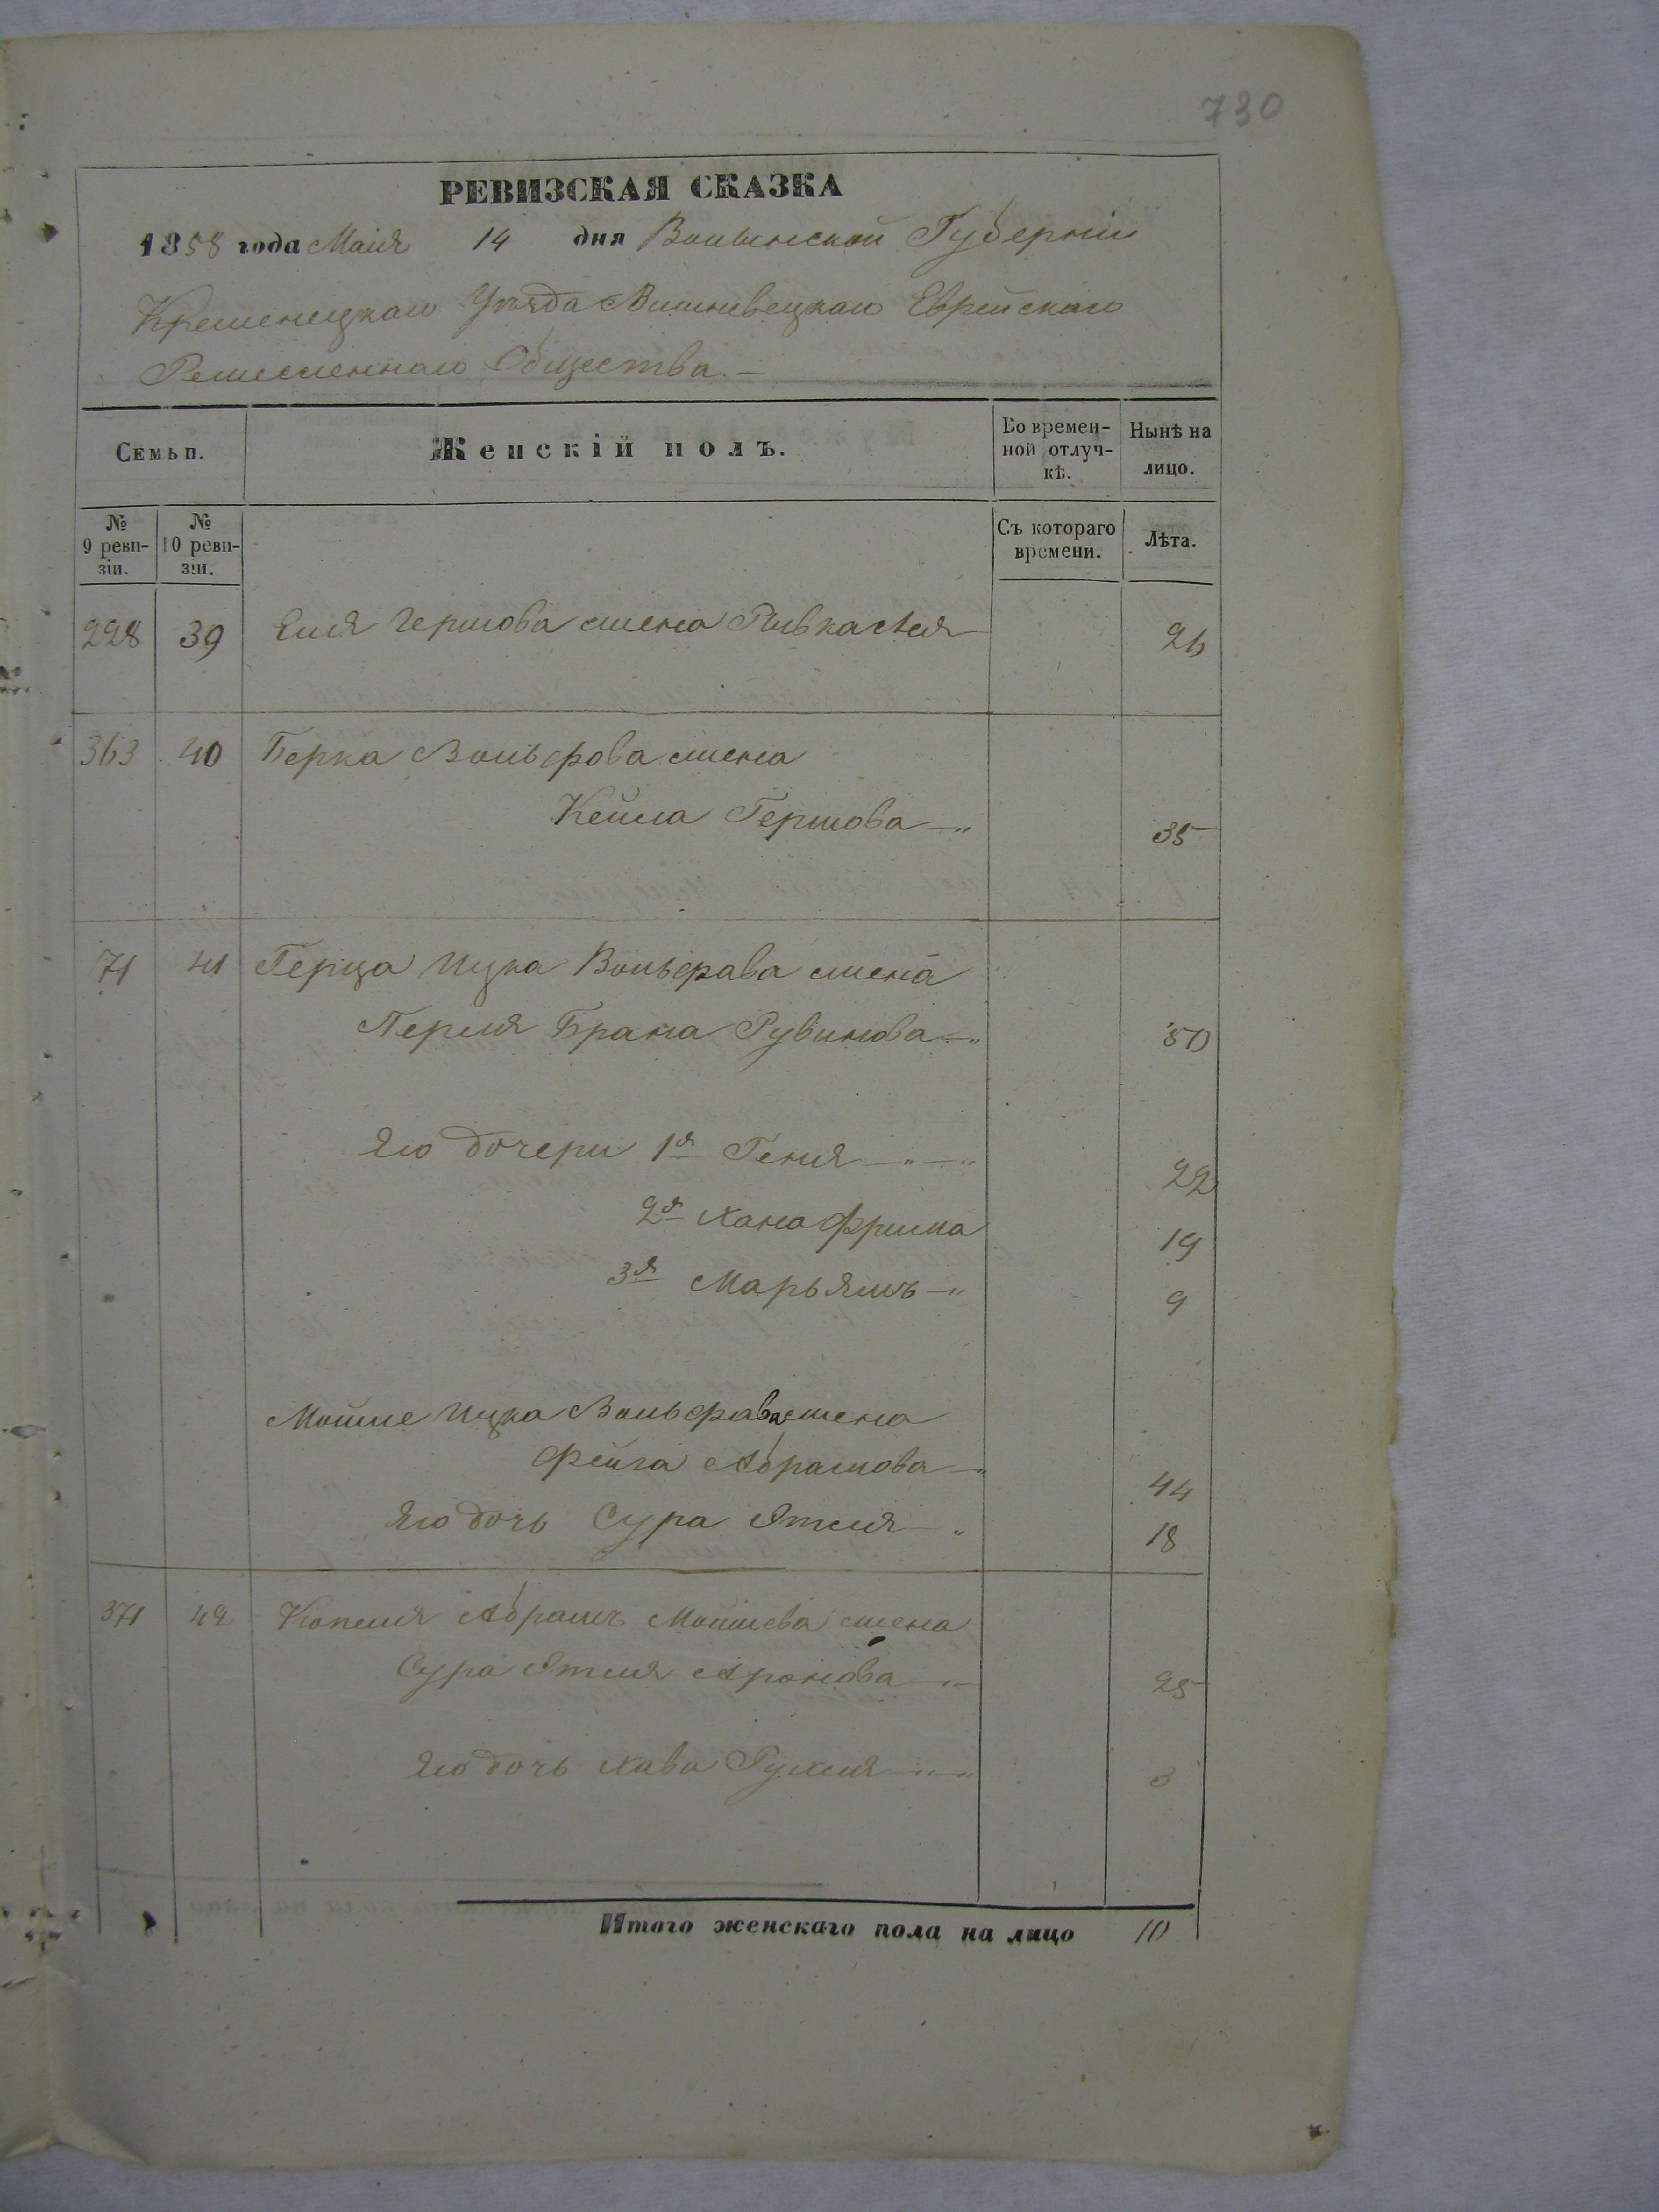 730
РЕВИЗСКАЯ СКАЗКА
1858 года Маія 14 дня Волынской Губерніи
Кременецкаго Уѣзда Вишневецкаго Еврейскаго
Ремесленнаго Общества.—
Семьи. Женскій полъ. Во времен-ной отлуч-кѣ. Нынѣ на лицо.
№ 9 реви-зіи. № 10 реви-зіи. Съ котораго времени. Лѣта.
228 39 Еля Гершова жена Ривка Лея 26
363 40 Берка Вольфова жена
Кейла Гершова —„ 35
71 41 Герца Ицка Вольфава жена
Перля Брана Рувинова —„ 50
Его дочери 1я Геня —„—„ 22
2я Хана Фрима 19
3я Марьямъ —„ 9
Мошке Ицка Вольфава жена
Фейга Абрамова —„ 44
Его дочь Сура Этля —„ 18
371 42 Копеля Абрамъ Мошкева жена
Сура Этля Аронова —„ 25
Его дочь Хава Рухля —„—„ 3
Итого женскаго пола на лицо 10